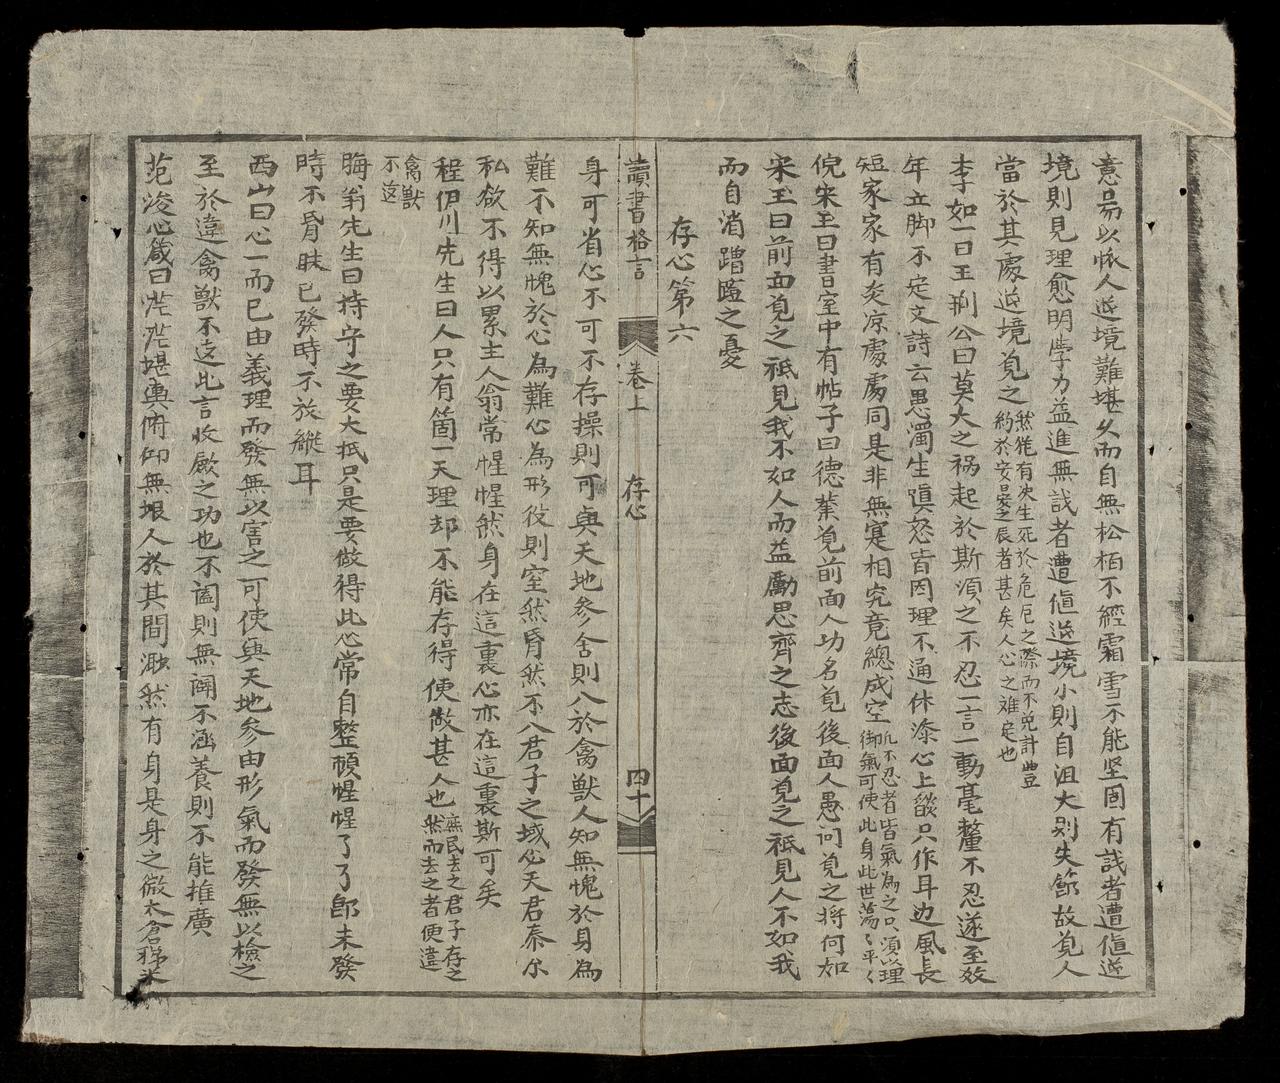 意易以怅人逆境難堪久而自無松栢不經霜雪不能坚固有誠者遭值逆
境則見理愈明學力益進無誠者遭值逆境小則自沮大則失節故覓人
當於其處逆境覓之
然徃有决生死於危厄之際而不免計豐
約於安晏之辰者甚矣人心之难定也
李如一曰王荆公曰莫大之祸起於斯須之不忍一言一動毫釐不忍遂至效
年立脚不定文詩云愚濁生瞋怒皆因理不通休添心上燄只作耳边風長
短家家有炎凉處處同是非無寔相究竟總成空
凡不忍者皆氣為之只須以理
御氣可使此身此世蕩々平々
倪宋王曰書室中有帖子曰德業覓前面人功名覓後面人愚问覓之将何如
宋王曰前面覓之祇見我不如人而益勵思齊之志後面覓之祇見人不如我
而自消蹭蹬之憂
存心第六
讀書格言 卷上 存心 四十
身可省心不可不存操則可與天地參舍則入於禽獸人知無愧於身為
難不知無愧於心為難心為形役則窒然昏然不入君子之域心天君泰尔
私欲不得以累主人翁常惺惺然身在這裏心亦在這裏斯可矣
程伊川先生曰人只有箇一天理却不能存得使做甚人也
庶民去之君子存之
然而去之者便違
禽獸
不遠
晦翁先生曰持守之要大抵只是要做得此心常自整頓惺惺了了即未發
時不昏昧已發時不放縱耳
西山曰心一而已由義理而發無以害之可使與天地參由形氣而發無以檢之
至於違禽獸不遠此言收厥之功也不阖則無闢不涵養則不能推廣
范浚心箴曰茫茫堪輿俯仰無垠人於其間渺然有身是身之微太倉稊米